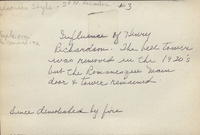 #3
Influence of Henry
Richardson. The bell tower
was removed in the 1920's
but the Romanesque main
door & tower remained.
Since demolished by fire